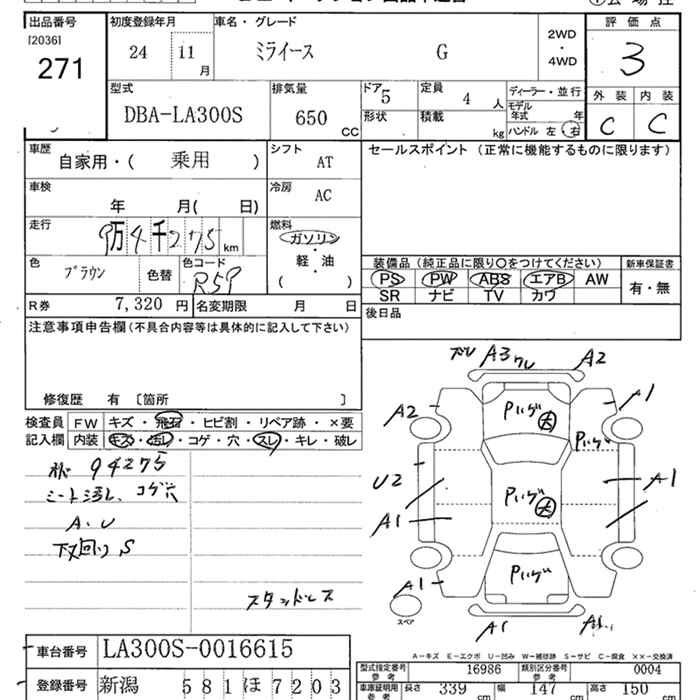 出品番号 初度登録年月 車名・グレード 評価点
[2036] 24 11 月 ミライース G 2WD ・ 4WD 3
271
型式 排気量 ドア 定員 ディーラー・並行 外装 内装
DBA-LA300S 650 CC 5 4 人 モデル年式 年 C C
形状 積載 kg ハンドル 左・右
車歴 シフト セールスポイント (正常に機能するものに限ります)
自家用・( 乗用 ) AT
車検 冷房
年 月( 日) AC
走行 燃料
9万4千275 km ガソリン
軽・油
( )
色 色コード 装備品 (純正品に限り○をつけてください) 新車保証書
ブラウン 色替 R59 PS PW ABS エアB AW 有・無
SR ナビ TV カワ
R券 7,320 円 名変期限 月 日 後日品
注意事項申告欄(不具合内容等は具体的に記入して下さい)
修復歴 有 〔箇所 〕
検査員 FW キズ・飛石・ヒビ割・リペア跡・×要
記入欄 内装 キズ・汚レ・コゲ・穴・スレ・キレ・破レ
94275
シート汚レ、コゲ穴
A・U
下回り S
スタッドレス
A3 ワレ A2
A2 Pいげ 大 A1
Pいげ
U2 Pいげ 大 A1
A1
Pいげ
A1
スペア A1 A1
A-キズ E-エクボ U-凹み W-補修跡 S-サビ C-腐食 ××-交換済
車台番号 LA300S-0016615
登録番号 新潟 581 ほ 7203
型式指定番号 参考 16986 類別区分番号 参考 0004
車庫証明用 参考 長さ 339 cm 幅 147 cm 高さ 150 cm